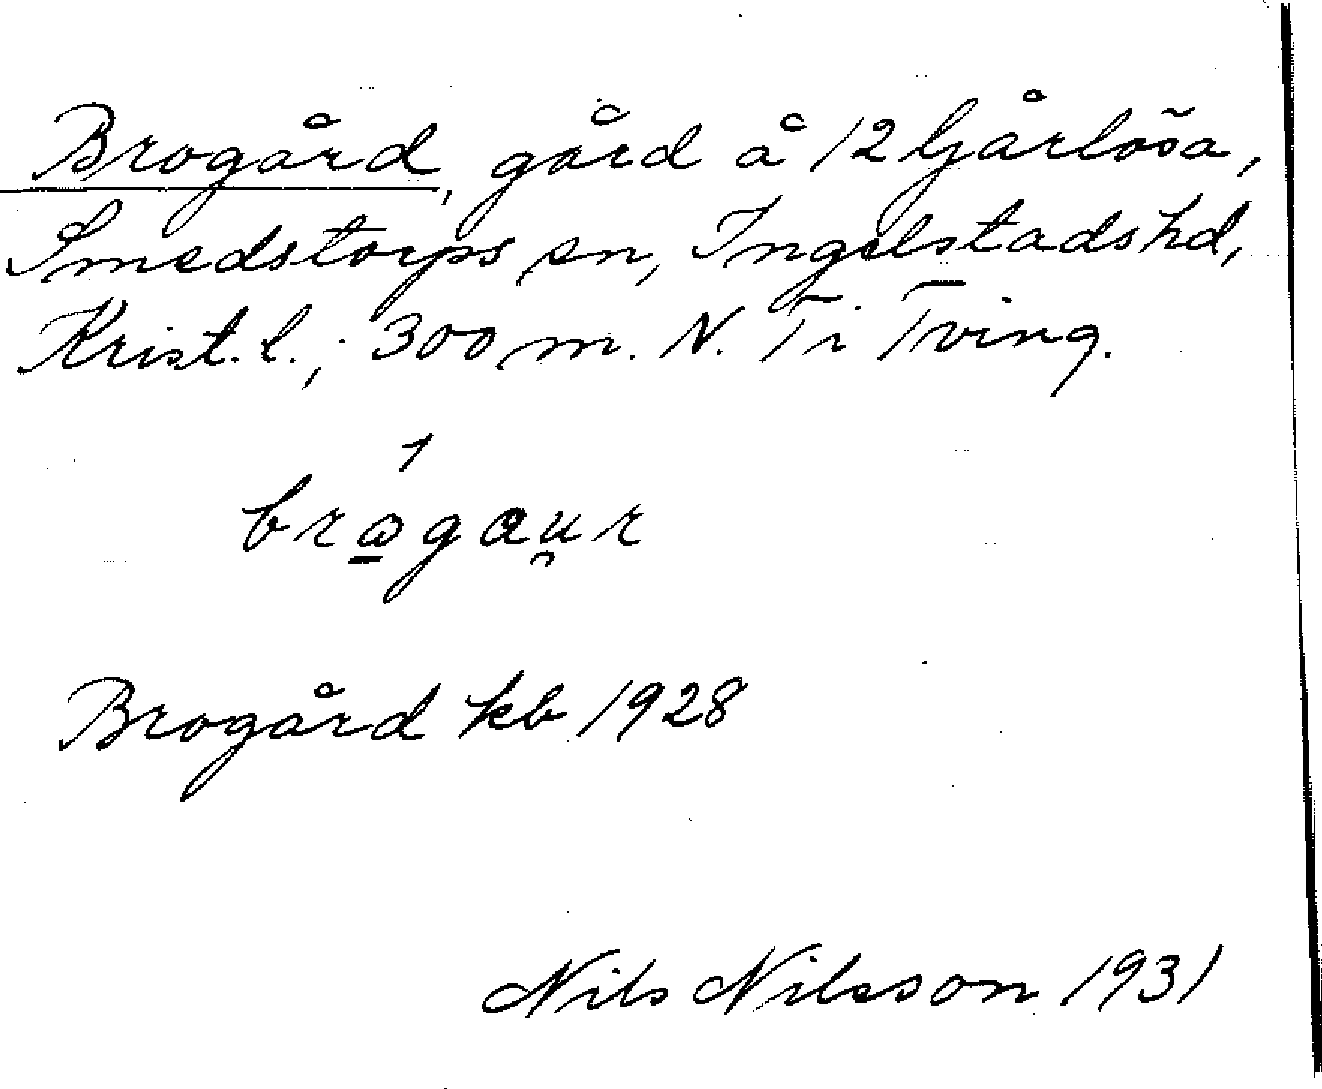 Brogård, gård å 12 Gårlösa,
Smedstorps sn, Ingelstads hd,
Krist. l.; 300 m. N. Ti Tving.
Brogård kb 1928
Nils Nilsson 1931